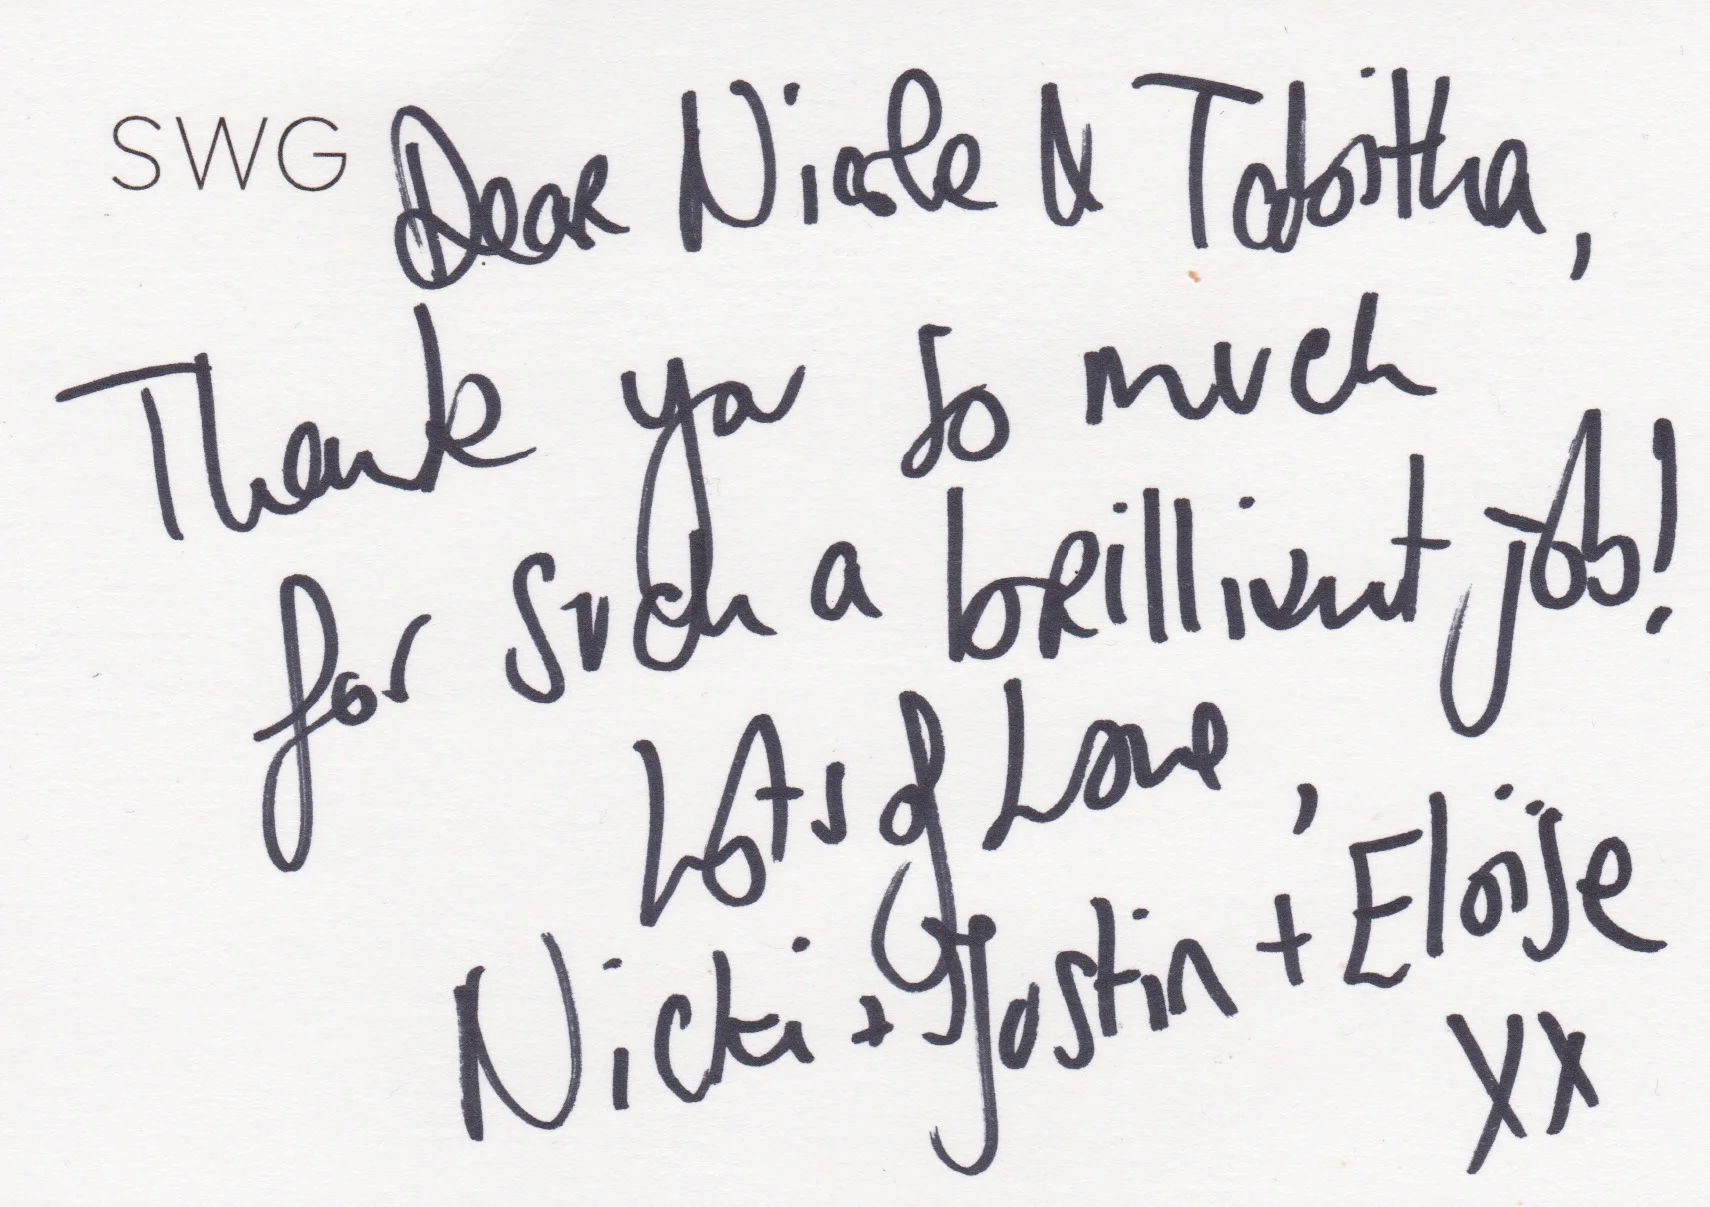 SWG
Dear Nicole & Tabitha,
Thank you so much
for such a brilliant job!
Lots of Love,
Nicki + Justin + Eloïse
xx